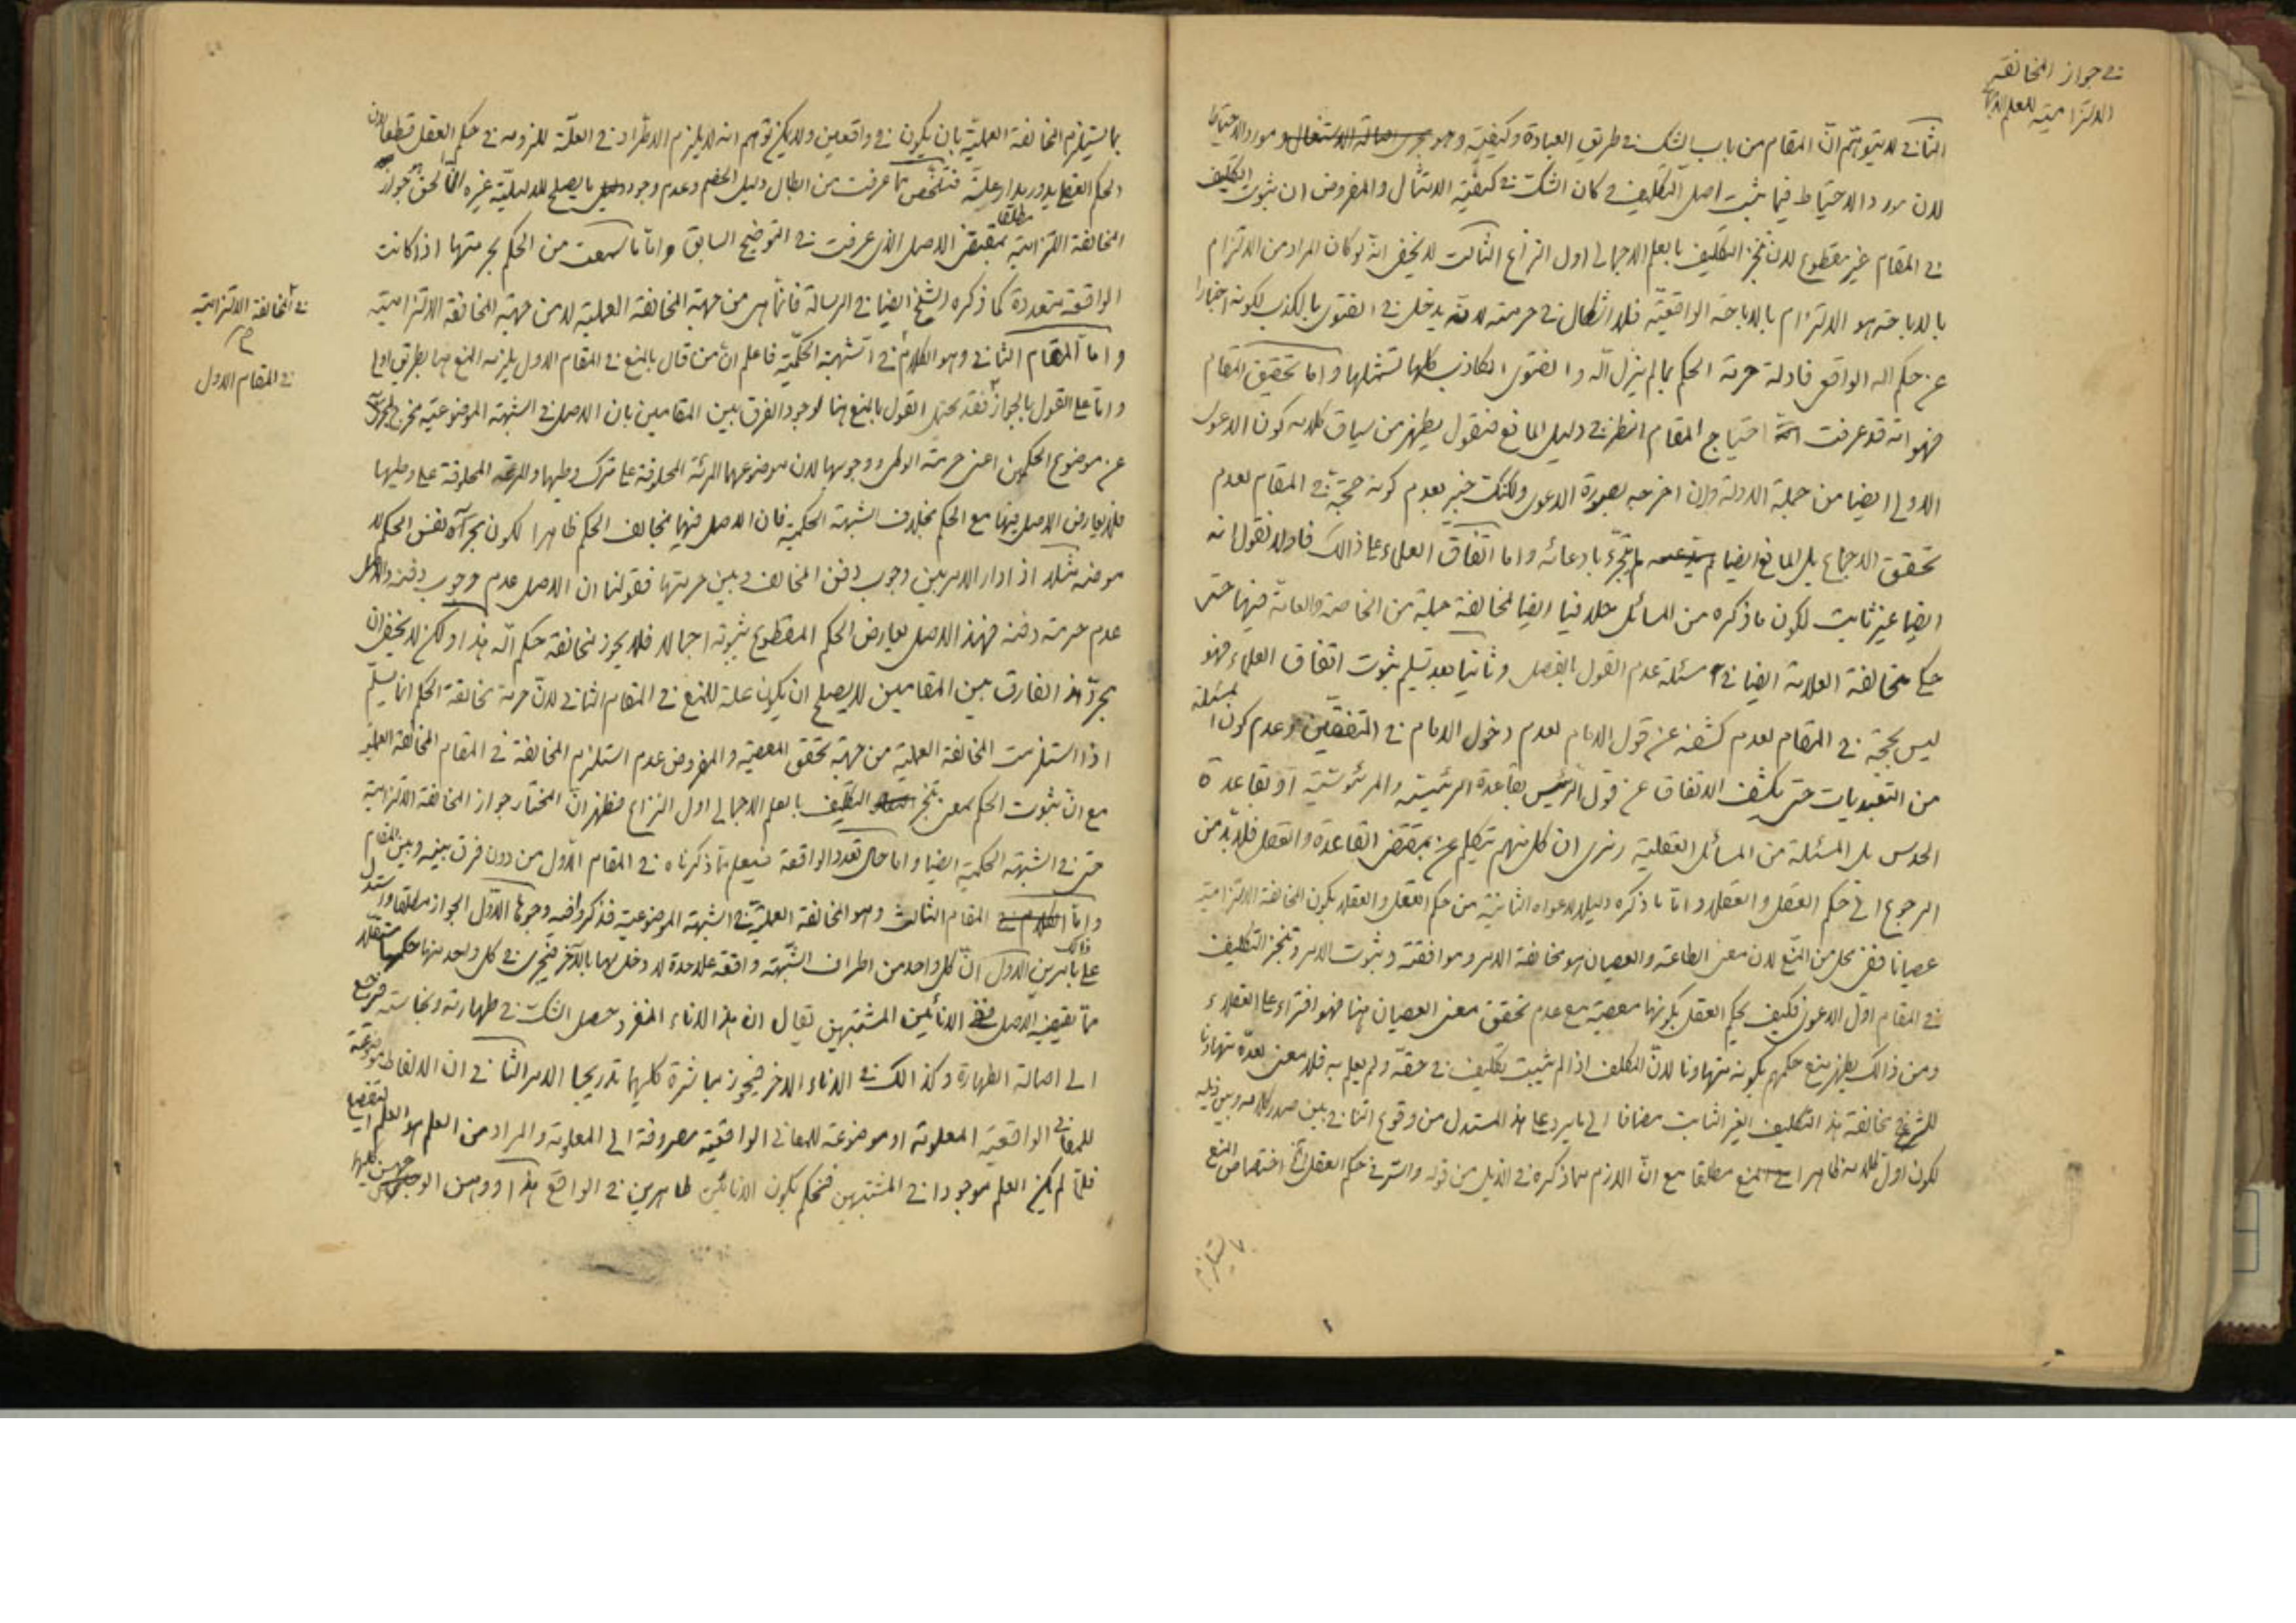 في جواز المخالفة
الالتزامية للعلم
الثاني لا يتوهم انّ المقام من باب الشك في طريق العبادة وكيفيته وهو مجرى اصالة الاشتغال ومورد الاحتياط
لان مورد الاحتياط فيما يثبت اصل التكليف وكان الشك في كيفية الامتثال والمفروض ان ثبوت التكليف
في المقام غير مقطوع لان تنجز التكليف بالعلم الاجمالي اول النزاع الثالث لا يخفى انه لو كان المراد من الالتزام
بالاباحة هو الالتزام بالاباحة الواقعيّة فلا اشكال في حرمته لانه يدخل في الفتوى بالكذب لكونه اخبارا
عن حكم الله الواقع فادلة حرمة الحكم بما لم ينزل الله والفتوى الكاذب كلها تشملها واما تحقيق المقام
فهو انه قد عرفت احتياج المقام النظر في دليل المانع فنقول يظهر من سياق كلامه كون الدعوى
الاولى ايضا من جملة الادلة وان اخرجه بصورة الدعوى ولكنك خبير بعدم كونه حجة في المقام لعدم
تحقق الاجماع بل المانع ايضا لم يتجرّء بادعائه واما اتفاق العلماء على ذالك فاولا نقول انه
ايضا غير ثابت لكون ما ذكره من المسائل خلافيا ايضا لمخالفة جملة من الخاصة والعامة فيها حتى
حكي مخالفة العلامة ايضا في مسئلة عدم القول بالفصل وثانيا بعد تسليم ثبوت اتفاق العلماء فهو
ليس بحجة في المقام لعدم كشفه عن قول الامام لعدم دخول الامام في المتفقين وعدم كون المسئلة
من التعبديات حتى يكشف الاتفاق عن قول الرئيس بقاعدة الرئيسية والمرئوسية او بقاعدة
الحدس بل المسئلة من المسائل العقلية ونرى ان كل منهم تكلم عن بمقتضى القاعدة والعقل فلا بد من
الرجوع الى حكم العقل والعقلاء واما ما ذكره دليلا لدعواه الثانية من حكم العقل والعقلاء بكون المخالفة الالتزامية
عصيانا ففي محل من المنع لان معنى الطاعة والعصيان هو مخالفة الامر وموافقته وثبوت الامر وتنجز التكليف
في المقام اول الدعوى فكيف يحكم العقل بكونها معصية مع عدم تحقق معنى العصيان هنا فهو افتراء على العقلاء
ومن ذالك يظهر منع حكمهم بكونه متهاونا لانّ المكلف اذا لم يثبت تكليف في حقه ولم يعلم به فلا معنى لعدّه متهاونا
للشرع مخالفة هذا التكليف الغير الثابت مضافا الى ما يرد على هذا المستدل من وقوع التنافي بين صدر كلامه وبين ذيله
لكون اول كلامه ظاهرا في المنع مطلقا مع انّ اللازم مما ذكره في الذيل من قوله والسر في حكم العقل اختصاص المنع
بما يستلزم المخالفة العمليّة بان يكون في واقعين ولا يمكن توهم انه لا يلزم الاطراد في العلّة للزومه في حكم العقل قطعا لان
الحكم العقلي يدور مدار علته فتلخص مما عرفت من ابطال دليل الخصم وعدم وجود ما يصلح للدليلية غيره انّ الحق هو جواز
المخالفة التزامية مطلقا بمقتضى الاصل الذي عرفت في التوضيح السابق واما ما سمعت من الحكم بحرمتها اذا كانت
الواقعة متعددة كما ذكره الشيخ ايضا في الرسالة فانما هي من جهة المخالفة العملية لا من جهة المخالفة الالتزامية
واما المقام الثاني وهو الكلام في الشبهة الحكمية فاعلم انّ من قال بالمنع في المقام الاول يلزمه المنع هنا بطريق اولى
في المخالفة الالتزامية
في المقام الاول
واما على القول بالجواز فقد يحتمل القول بالمنع هنا لوجود الفرق بين المقامين بان الاصل في الشبهة الموضوعية مخرج
عن موضوع الحكمين اعنى حرمة الوطى ووجوبها لان موضوعهما المرئة المحلوفة على ترك وطيها والمرئة المحلوفة على وطيها
فلا يعارض الاصل فيها مع الحكم بخلاف الشبهة الحكمية فان الاصل فيها مخالف الحكم ظاهرا لكون مجراه نفس الحكم لا
موضوعه مثلا اذا دار الامر بين وجوب دفن المخالف وبين حرمتها فقولنا ان الاصل عدم وجوب دفنه والاصل
عدم حرمة دفنه فهذا الاصل يعارض الحكم المقطوع بثبوته اجمالا فلا يجوز لمخالفة حكم الله هذا ولكن لا يخفى ان
مجرّد هذا الفارق بين المقامين لا يصلح ان يكون علة للمنع في المقام الثاني لانّ حرمة مخالفة الحكم انما يسلّم
اذا استلزمت المخالفة العملية من جهة تحقق المعصية والمفروض عدم استلزام المخالفة في المقام المخالفة العملية
مع انّ ثبوت الحكم بمعنى تنجز التكليف بالعلم الاجمالي اول النزاع فظهر انّ المختار جواز المخالفة الالتزامية
حتى في الشبهة الحكمية ايضا واما حال تعدد الواقعة فيعلم مما ذكرناه في المقام الاول من دون فرق بينه وبين المقام
واما الكلام في المقام الثالث وهو المخالفة العمليّة في الشبهة الموضوعية فذكروا فيه وجوها الاول الجواز مطلقا واستدل
على ذالك بامرين الاول انّ كل واحد من اطراف الشبهة واقعة علاحدة لا دخل لها بالآخر فيجرى في كل واحد منها حكمها مستقلا
مما يقتضيه الاصل ففي الانائين المشتبهين يقال ان هذا الاناء المنفرد حصل الشك في طهارته ونجاسته فيرجع
الى اصالة الطهارة وكذالك في الاناء الاخر فيجوز مباشرة كليهما تدريجا الامر الثاني ان الالفاظ موضوعة
للمعاني الواقعية المعلومة او موضوعة للمعاني الواقعية مصروفة الى المعلومة والمراد من العلم هو العلم التفصيلي
فلمّا لم يكن العلم موجودا في المشتبهين فنحكم بكون الانائين طاهرين في الواقع هذا